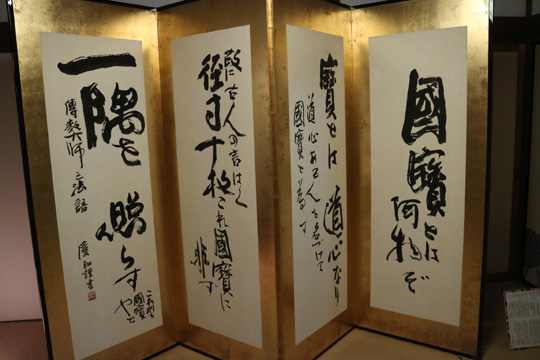 國寶とは
何物ぞ
寶とは 道心なり
道心ある人を名づけて
國寶と為す
故に古人の言はく
径寸十枚これ國寶に
非ず
一
隅を 照らす
國寶
傳教大師之法語
謹書